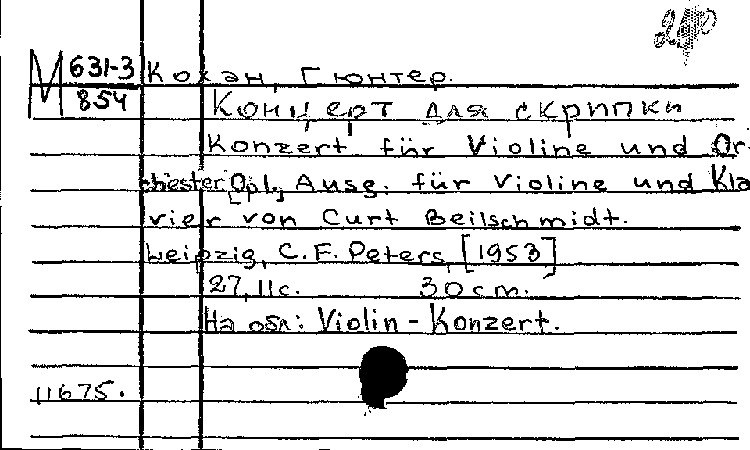 М 631-3 Кохан, Гюнтер.
854 Концерт для скрипки
Konzert für Violine und Or-
chester Op1, Ausg. für Violine und Kla
vier von Curt Beilschmidt.
Leipzig, C.F. Peters, [1953]
27, 11с. 30 cm.
На обл: Violin-Konzert.
11675.